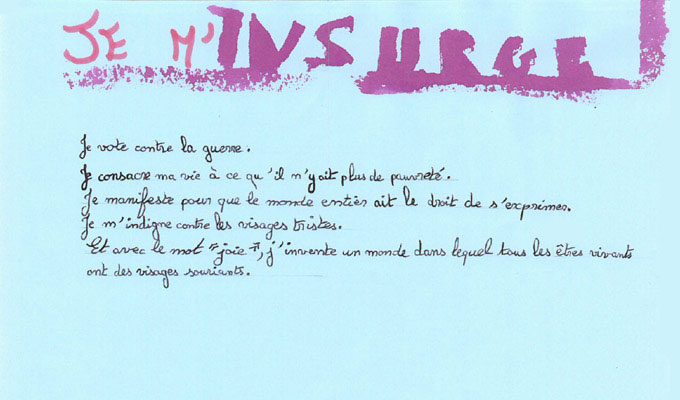 JE M'INSURGE
Je vote contre la guerre.
Je consacre ma vie à ce qu'il n'y ait plus de pauvreté.
Je manifeste pour que le monde entier ait le droit de s'exprimer.
Je m'indigne contre les visages tristes.
Et avec le mot "joie", j'invente un monde dans lequel tous les êtres vivants
ont des visages souriants.